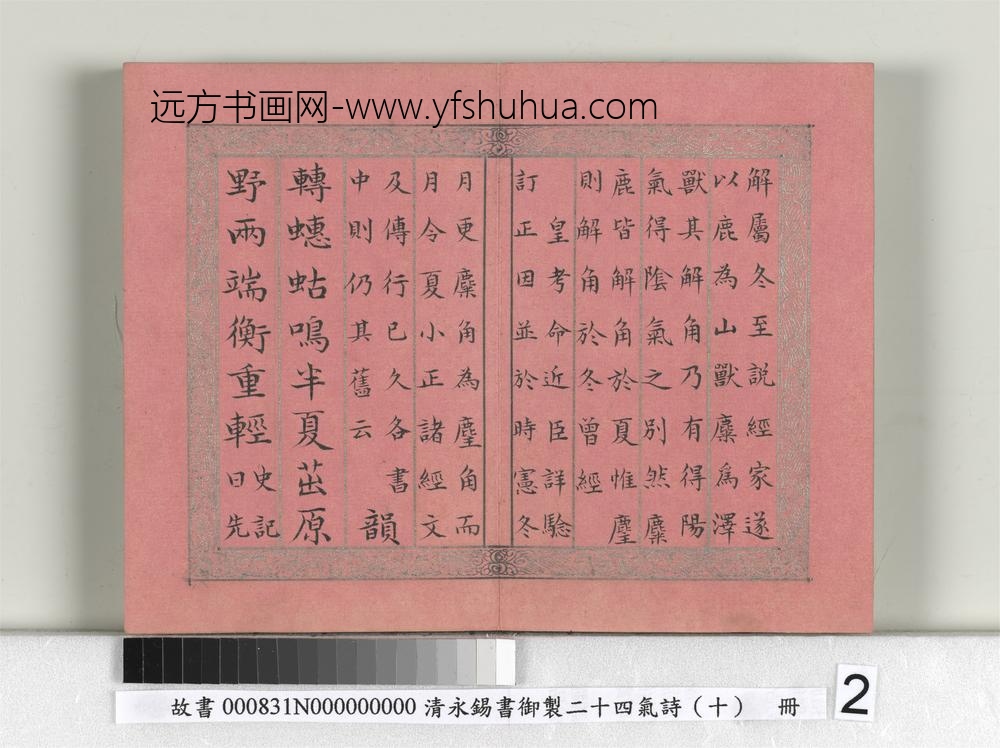 远方书画网-www.yfshuhua.com
解屬冬至說經家遂
以鹿為山獸麋爲澤
獸其解角乃有得陽
氣得陰氣之別然麋
鹿皆解角於夏惟麈
則解角於冬曾經
皇考命近臣詳騐
訂正因並於時憲冬
月更麋角為麈角而
月令夏小正諸經文
及傳行已久各書
中則仍其舊云
韻
轉蟪蛄鳴半夏茁原
野兩端衡重輕
史記
曰先
故書 000831N000000000 清永錫書御製二十四氣詩（十） 冊
2